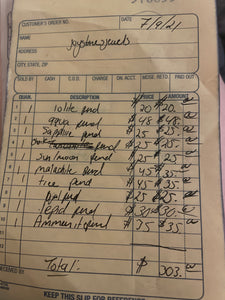 CUSTOMER'S ORDER NO.
DATE 7/9/21
NAME
ADDRESS
CITY, STATE, ZIP
SOLD BY CASH C.O.D. CHARGE ON ACCT. MDSE. RETD. PAID OUT
QUAN. DESCRIPTION PRICE AMOUNT
1 1 iolite pend $ 20 $20.
2 1 aqua pend $ 48 $48.
3 1 sapphire pend $ 25 $25.
4 1 pend $ 25 $25.
5 1 sun/moon pend $ 25 $25
6 1 malachite pend $ 45 $35
7 1 tree pend $ 45 $35.
8 1 pend $ 25 $25.
9 1 pend $ 30 $30.
10 1 pend $ 35 $35.
11
12
RECEIVED BY Total: $ 303.
KEEP THIS SLIP FOR REFERENCE